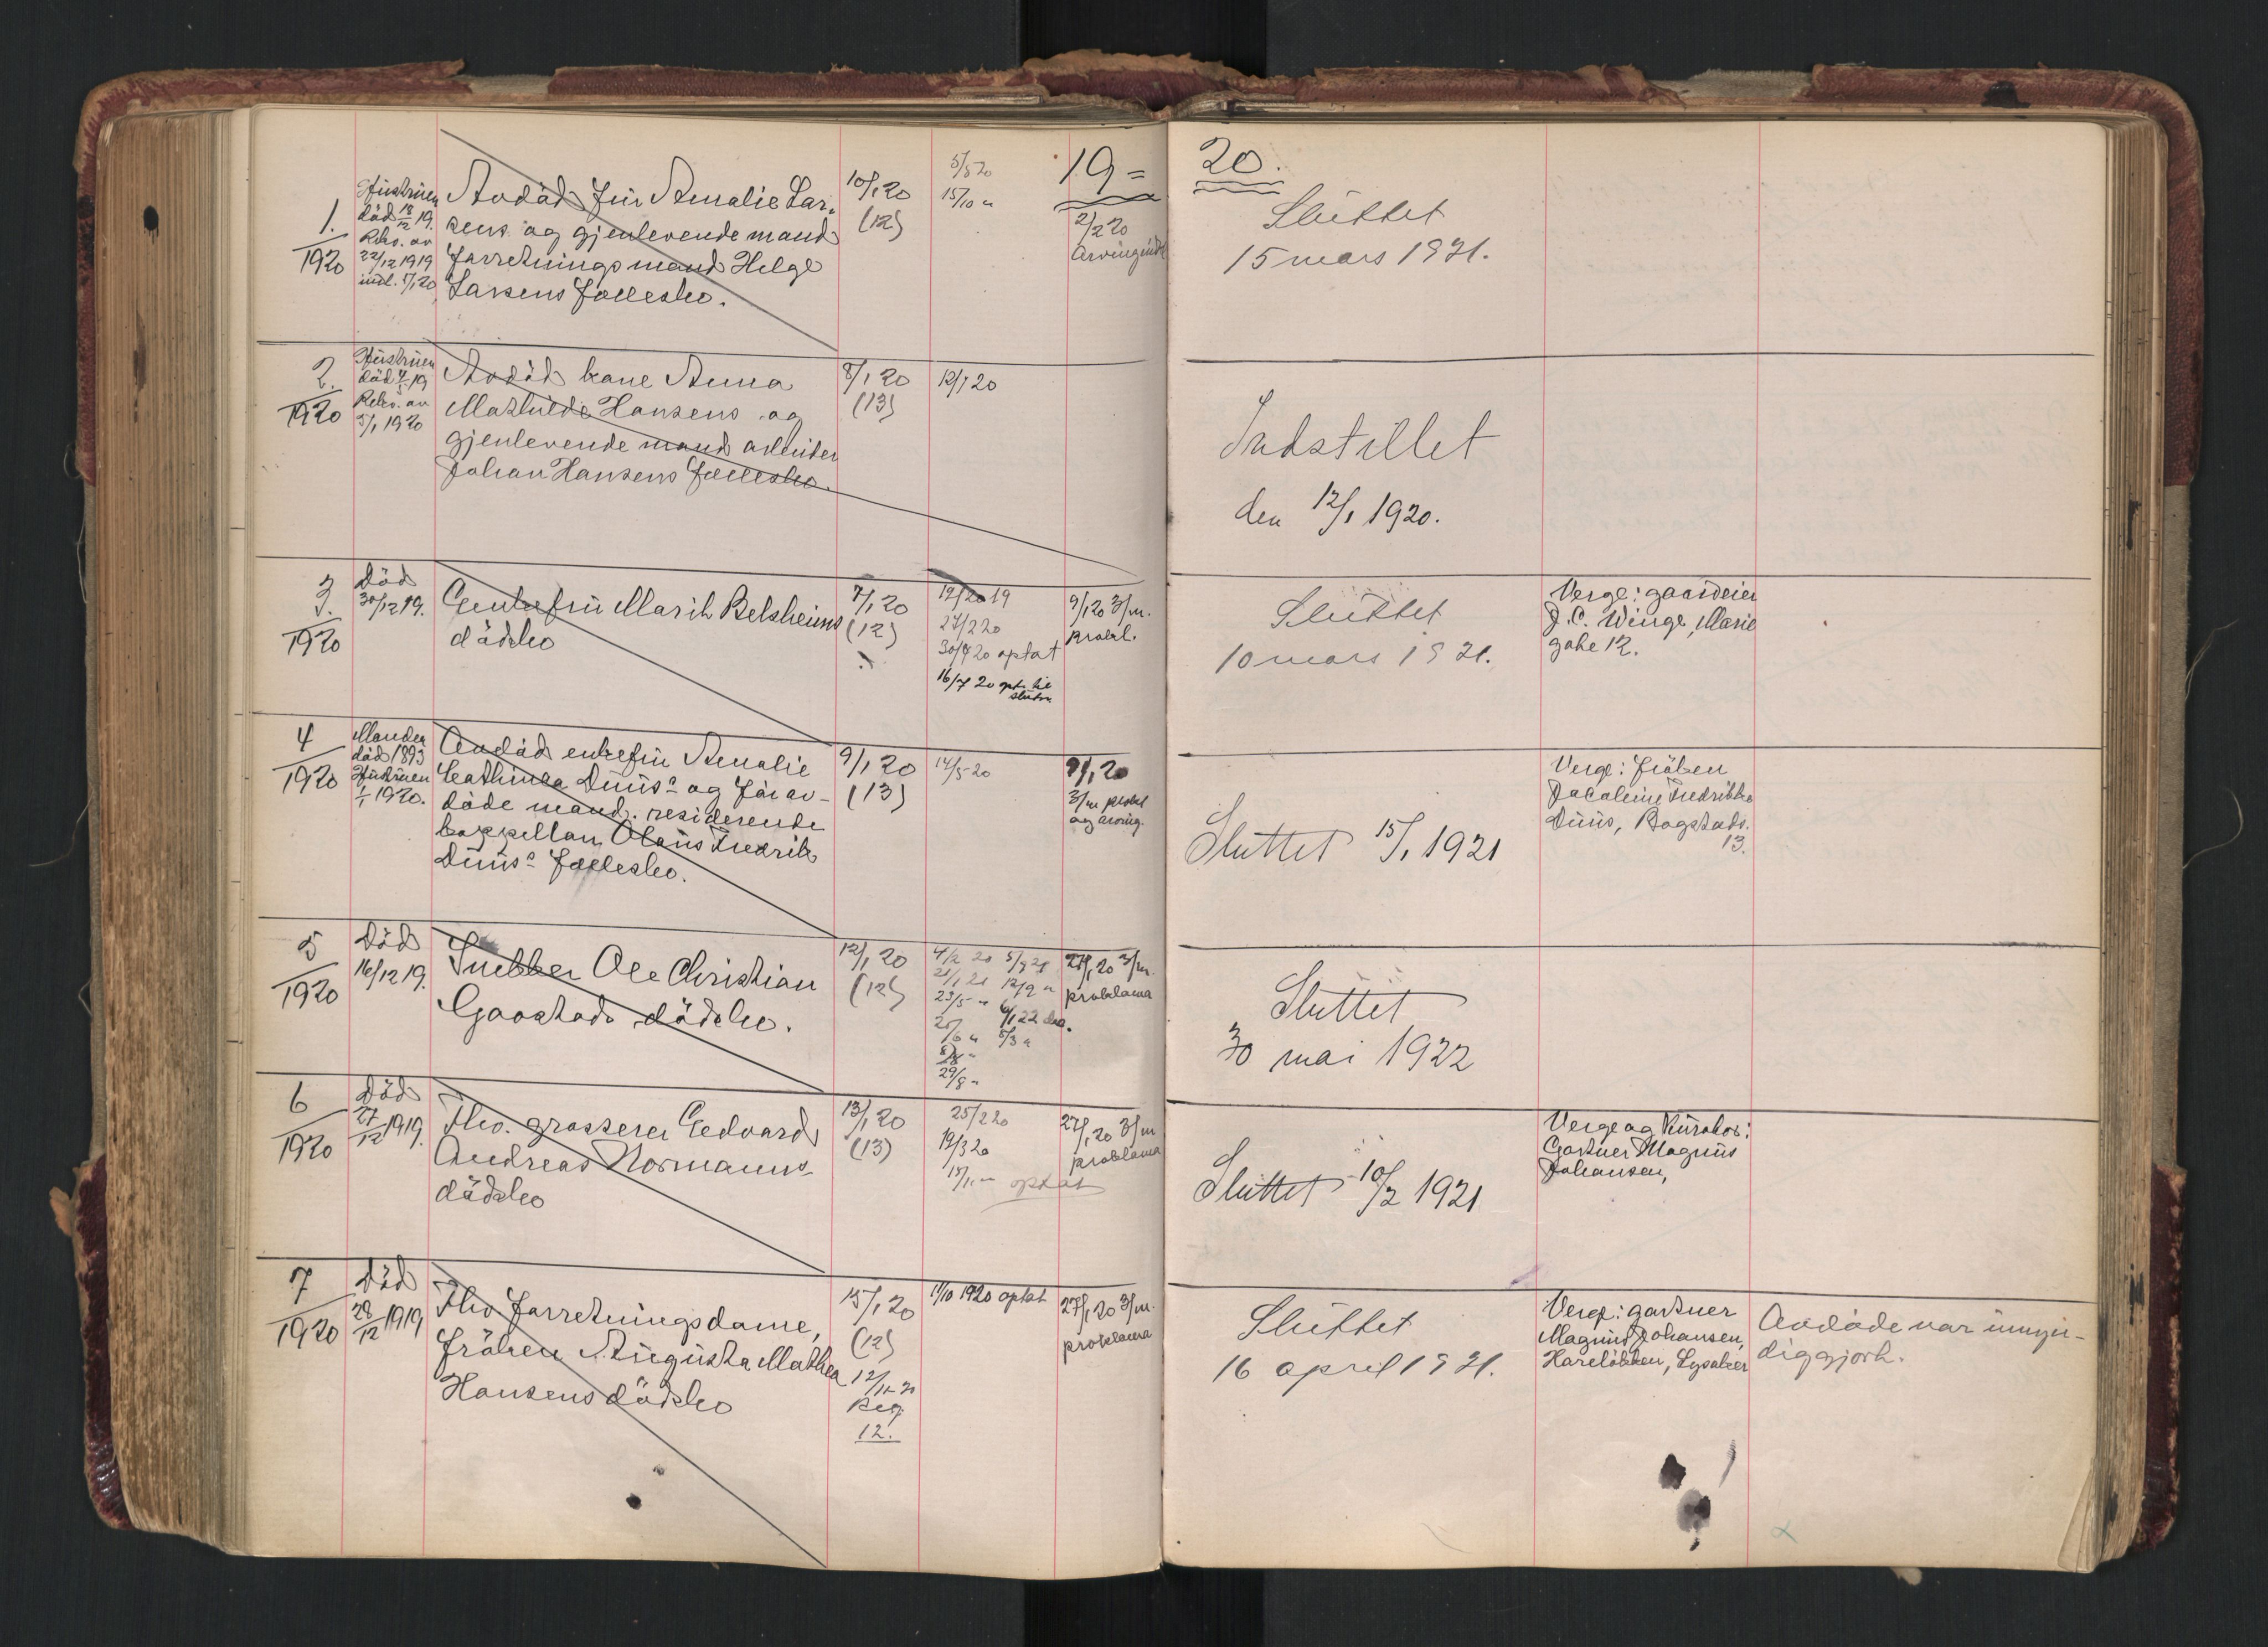 19=20.
1.
1920
Hustruen
död 18/12 19.
Rekv. av
22/12 1919
indl. 7/1 20
Avdöd fru Amalie Lar-
sens og gjenlevende mand
forretningsmand Helge
Larsens fællesbo.
10/1 20
(12)
5/5 20
15/10 "
2/2 20
Arvingindk
Sluttet
15 mars 1921.
2.
1920
Hustruen
Rekv. av
5/1 1920
Avdöd kone Anna
Mathilde Hansens og
gjenlevende mand arbeider
Johan Hansens fællesbo.
8/1 20
(13)
12/1 20
Indstillet
den 12/1 1920.
3.
1920
Död
30/12 19.
Enkefru Marih Belsheims
dödsbo
7/1 20
(12)
27/2 20
30/4 20 optat
16/7 20 opt. til
slutn
9/1 20 3/m.
prokl.
Sluttet
10 mars 1921.
Verge: gaardeier
J. C. Winge, Marie
gate 12.
4
1920
Manden
död 1893
Hustruen
1/1 1920.
Avdöd enkefru Amalie
Cathinca Duus og för av-
döde mand, residerende
kappellan Olaus Fredrik
Duus fællesbo.
9/1 20
(13)
14/5 20
9/1 20
3/m prokl
og arving.
Sluttet 15/1 1921
Verge: fröken
Jacobine Fredrikke
Duus, Bogstadv.
13.
5
1920
Död
16/12 19.
Snekker Ole Christian
Gaastads dödsbo.
12/1 20
(12)
4/2 20 5/9 21
21/1 21 12/9 "
23/5 " 6/1 22
5/3 "
29/8 "
27/1 20 3/m.
proklama
Sluttet
30 mai 1922
6
1920
Död
27/12 1919.
Fhv. grosserer Edvard
Andreas Normanns
dödsbo
13/1 20
(13)
25/2 20
19/3 20
optat
27/1 20 3/m
proklama
Sluttet 10/2 1921
Verge og kurator:
Gartner Magnus
Johansen,
7
1920
Död
28/12 1919
Fhv forretningsdame,
fröken Augusta Mathea
Hansens dödsbo
15/1 20
(12)
12/11 20
Reg
12.
1/10 1920 optat
27/1 20 3/m.
proklama
Sluttet
16 april 1921.
Verge: gartner
Magnus Johansen,
Hareløkken, Lysaker
Avdöde var umyn-
diggjort.